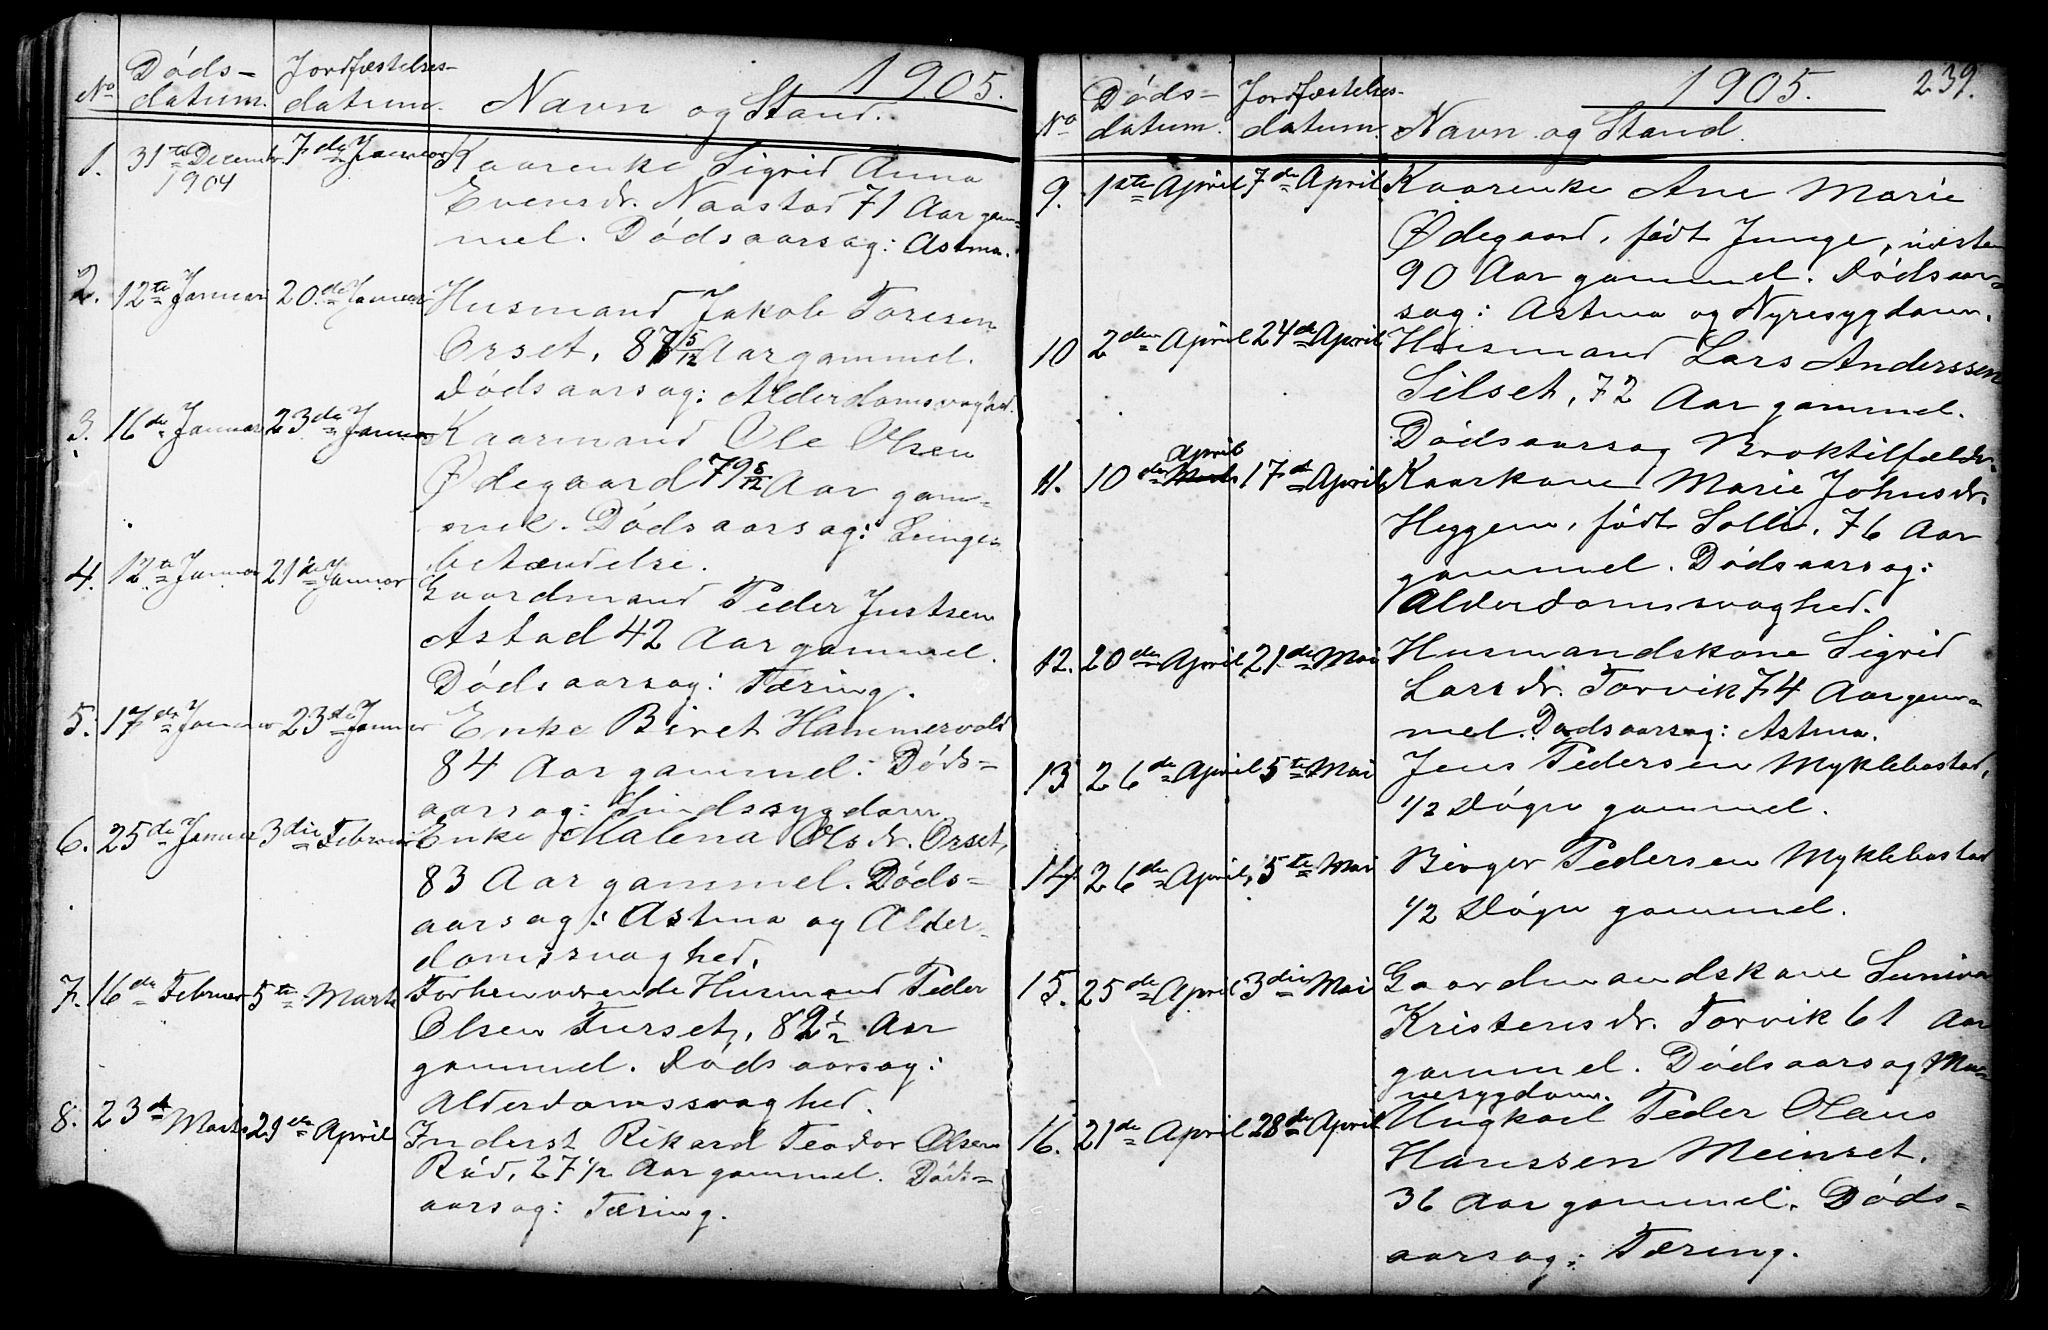 1905.
No Døds- Jordfæstelses-
datum. datum. Navn og Stand.
1. 31te December 7de Januar Kaarenke Sigrid Anna
1904 Evensdr. Naastad 71 Aar gam-
mel. Dødsaarsag: Astma.
2. 12te Januar 20de Januar Husmand Jakob Toresen
Orset, 87 5/12 Aar gammel.
Dødsaarsag: Alderdomsvaghed.
3. 16de Januar 23de Januar Kaarmand Ole Olsen
Ødegaard 79 8/12 Aar gam-
mel. Dødsaarsag: Lunge-
betændelse.
4. 12te Januar 21de Januar Gaardmand Peder Justsen
Astad 42 Aar gammel.
Dødsaarsag: Tæring.
5. 17de Januar 23de Januar Enke Biret Hammervold
84 Aar gammel. Døds-
aarsag: Sindssygdom.
6. 25de Januar 3die Februar Enke Malena Olsdr. Orset,
83 Aar gammel. Døds-
aarsag: Astma og Alder-
domssvaghed.
7. 16de Februar 5te Marts Forhenværende Husmand Peder
Olsen Furset, 82 1/2 Aar
gammel. Dødsaarsag:
Alderdomssvaghed.
8. 23de Marts 29de April Inderst Rikard Teodor Olsen
Rød, 27 1/2 Aar gammel. Døds-
aarsag: Tæring.
1905. 239.
No Døds- Jordfæstelses-
datum. datum. Navn og Stand.
9. 1ste April 7de April Kaarenke Ane Marie
Ødegaard, født Junge, næsten
90 Aar gammel. Dødsaar-
sag: Astma og Nyresygdom.
10 2den April 24de April Husmand Lars Anderssen
Silset, 72 Aar gammel.
Dødsaarsag Broktilfælde.
April
11. 10de Marts 17de April Kaarkone Marie Johnsdr.
Heggem, født Solli, 76 Aar
gammel. Dødsaarsag:
Alderdomssvaghed.
12. 20de April 21de Mai Husmandskone Sigrid
Larsdr. Torvik 74 Aar gam-
mel. Dødsaarsag: Astma.
13 26de April 5te Mai Jens Pedersen Myklebostad,
1/2 Døgn gammel.
14 26de April, 5te Mai Birger Pedersen Myklebostad
1/2 Døgn gammel.
15. 25de April 3die Mai Gaardmandskone Suniva
Kristensdr. Torvik 61 Aar
gammel. Dødsaarsag Ma-
vesygdom.
16. 21de April 28de April Ungkarl Peder Olaus
Hanssen Meinset,
36 Aar gammel. Døds-
aarsag: Tæring.